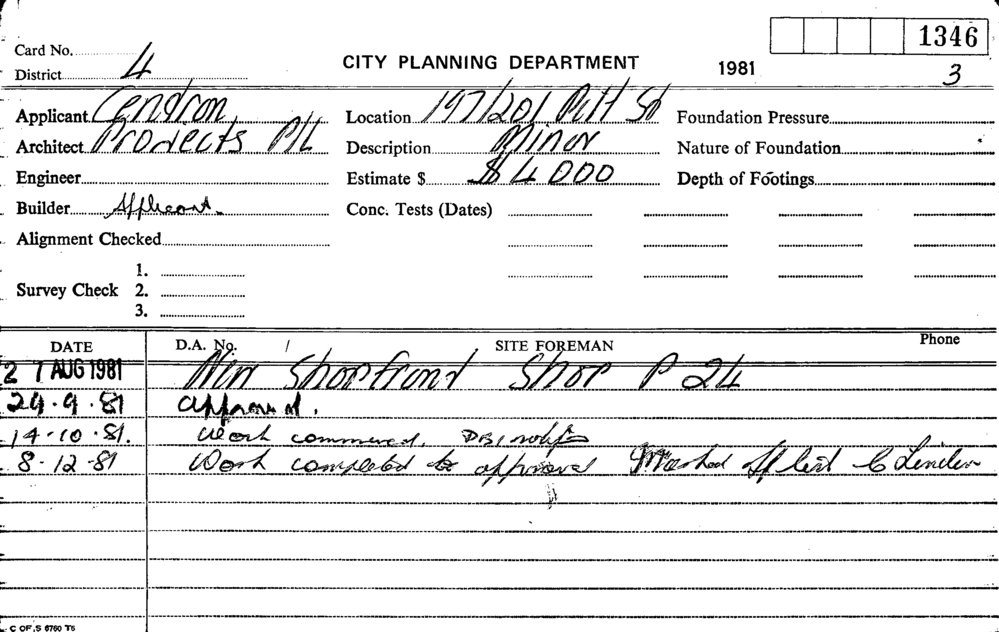 1346
Card No.
District 4
CITY PLANNING DEPARTMENT
1981
3
Applicant Cendron
Location 197/201 Pitt St
Foundation Pressure
Architect Projects P/L
Description Minor
Nature of Foundation
Engineer
Estimate $ $4000
Depth of Footings
Builder Applicant.
Conc. Tests (Dates)
Alignment Checked
1.
Survey Check 2.
3.
DATE D.A. No. / SITE FOREMAN Phone
21 AUG 1981 New Shopfront Shop P 24
29.9.81 approved.
14-10-81. Work commenced. DBI
8-12-81 Work completed to approval
C OF.S 6760 T5